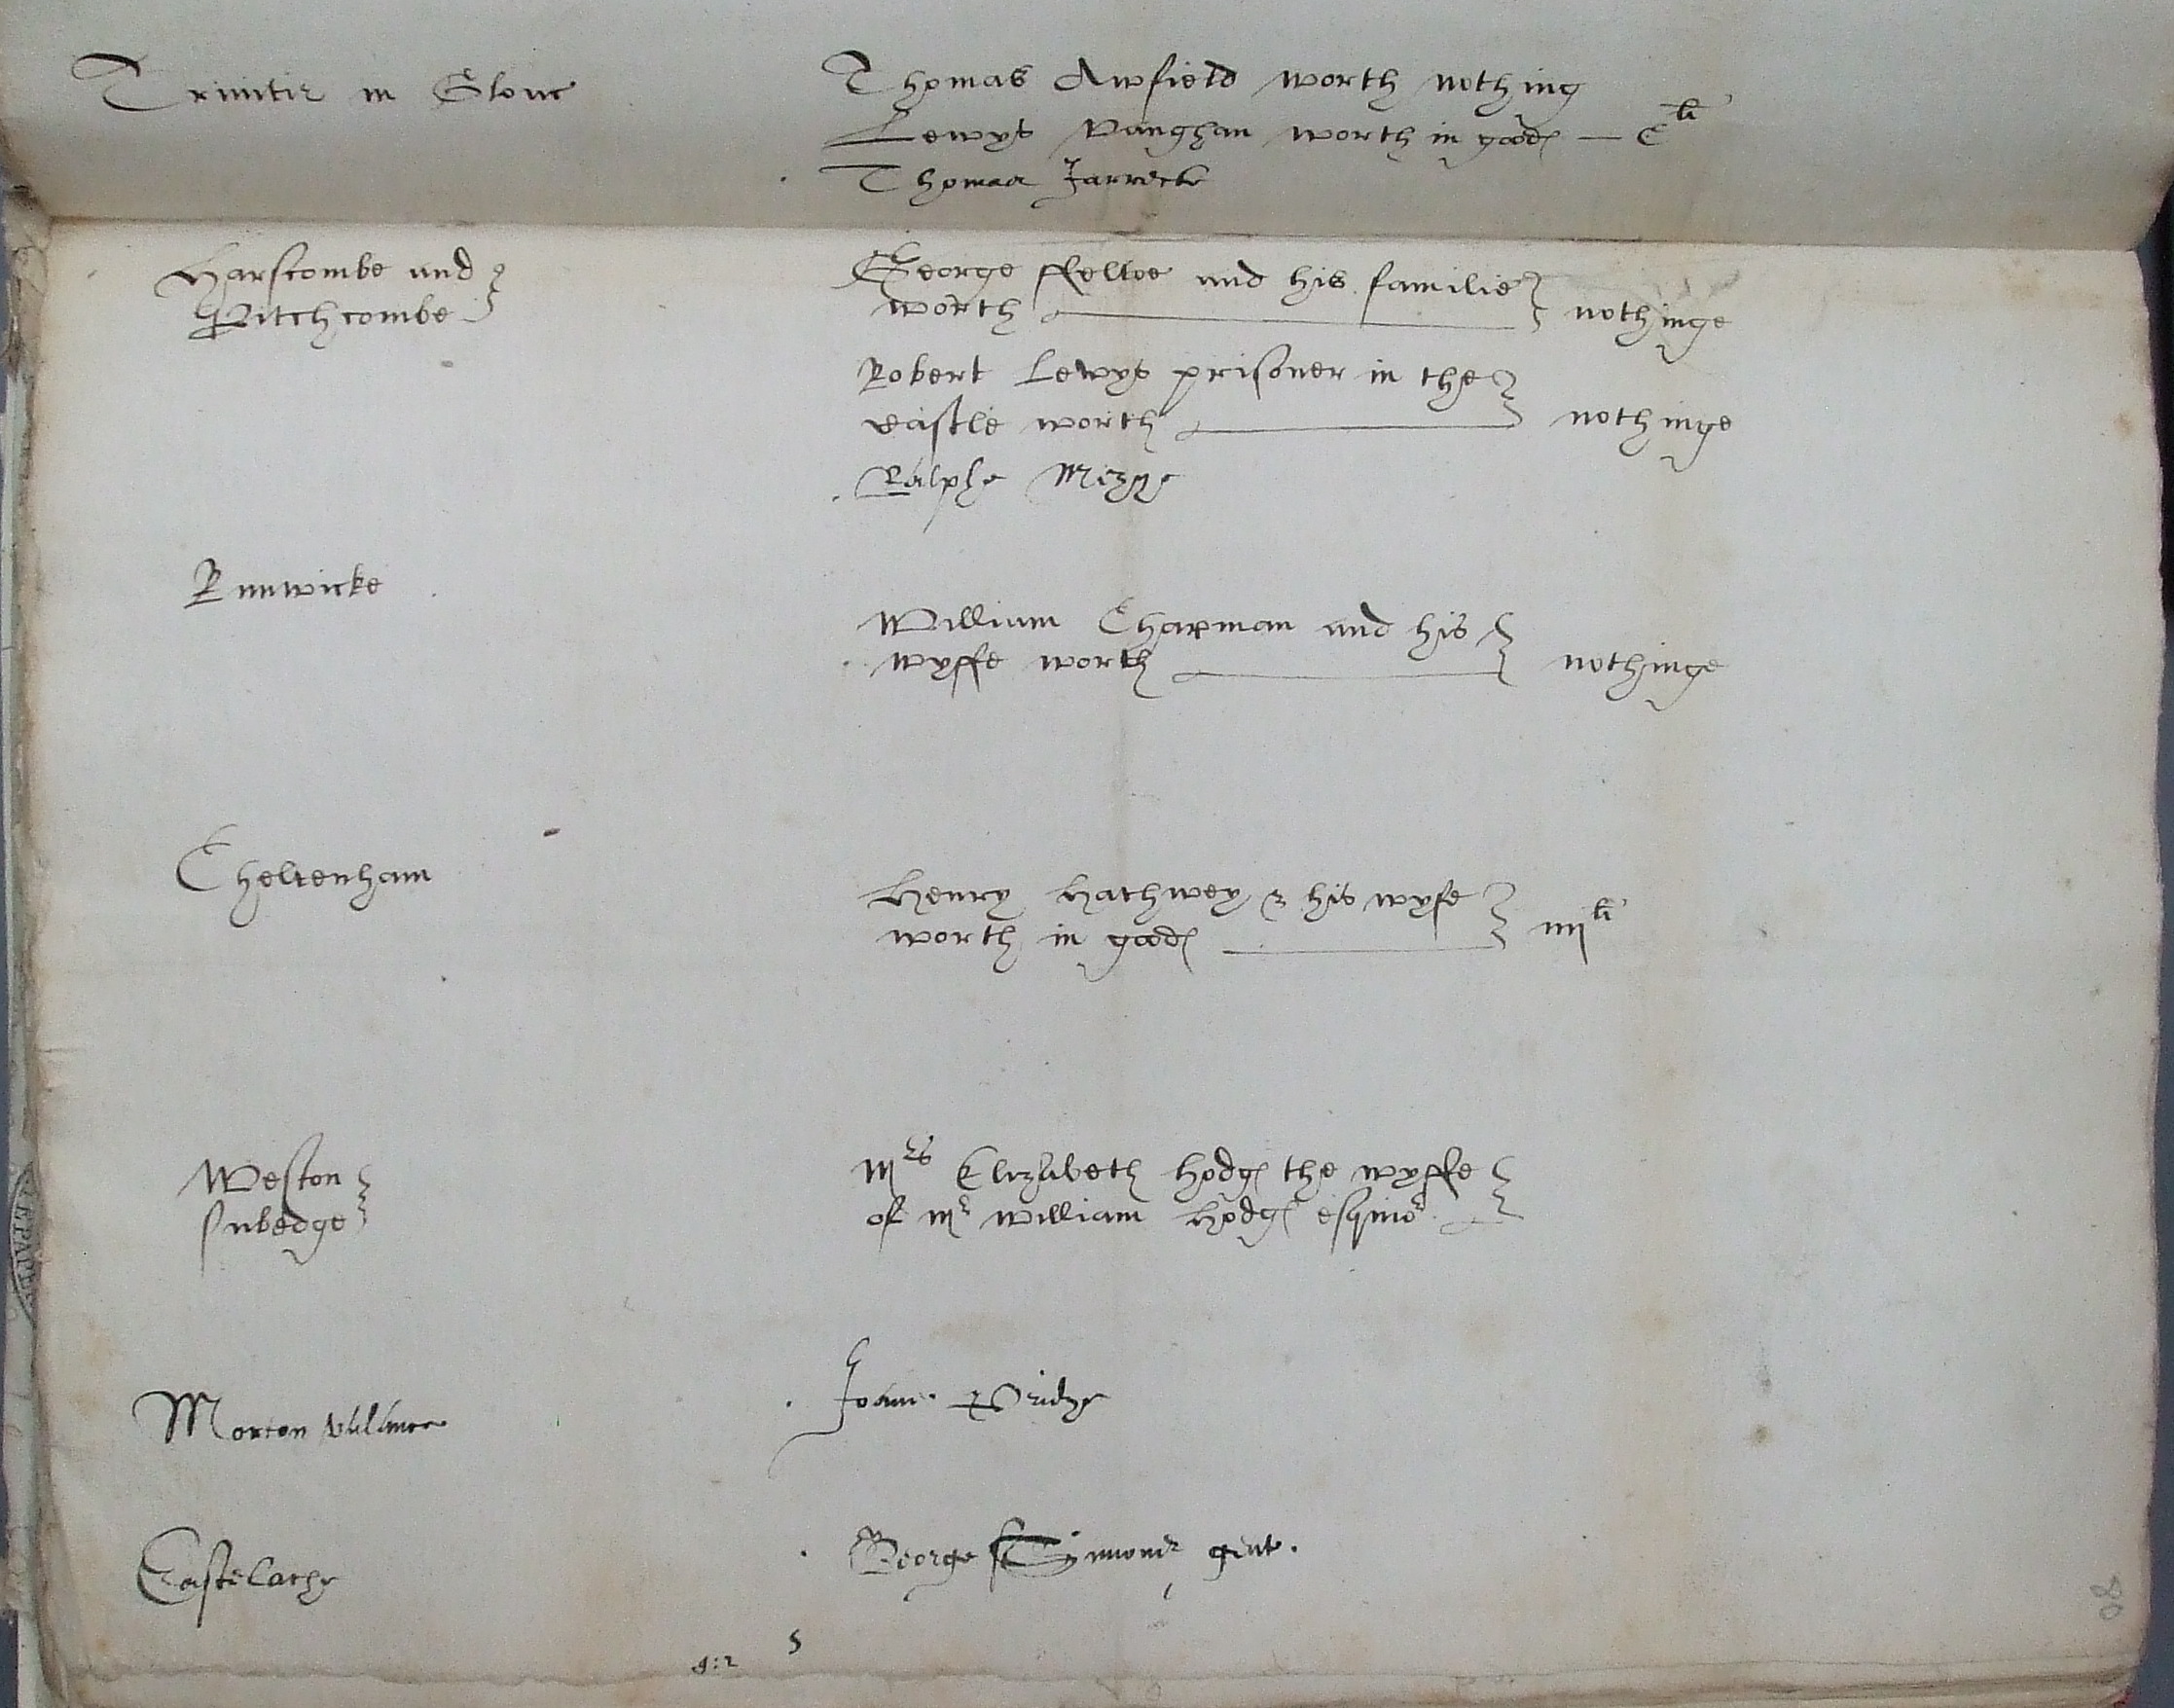 Trinitie in Glouc
Thomas Awfield worth nothing
Lewys Vaughan worth in goods — C li
Thomas Jarrett
Harscombe and
Pitchcombe
George ffelloe and his familie
worth nothinge
Robert Lewys prisoner in the
castle worth nothinge
Ralphe
Runwicke
William Chapman and his
wyffe worth nothinge
Cheltenham
Henry Hathwey & his wyfe
worth in goods iiij li
Weston
subedge
Mrs Elizabeth Hodges the wyffe
of Mr William Hodges esquior
Morton Vallence
Joane Pridye
Eastelache
George Symons gent.
S
80